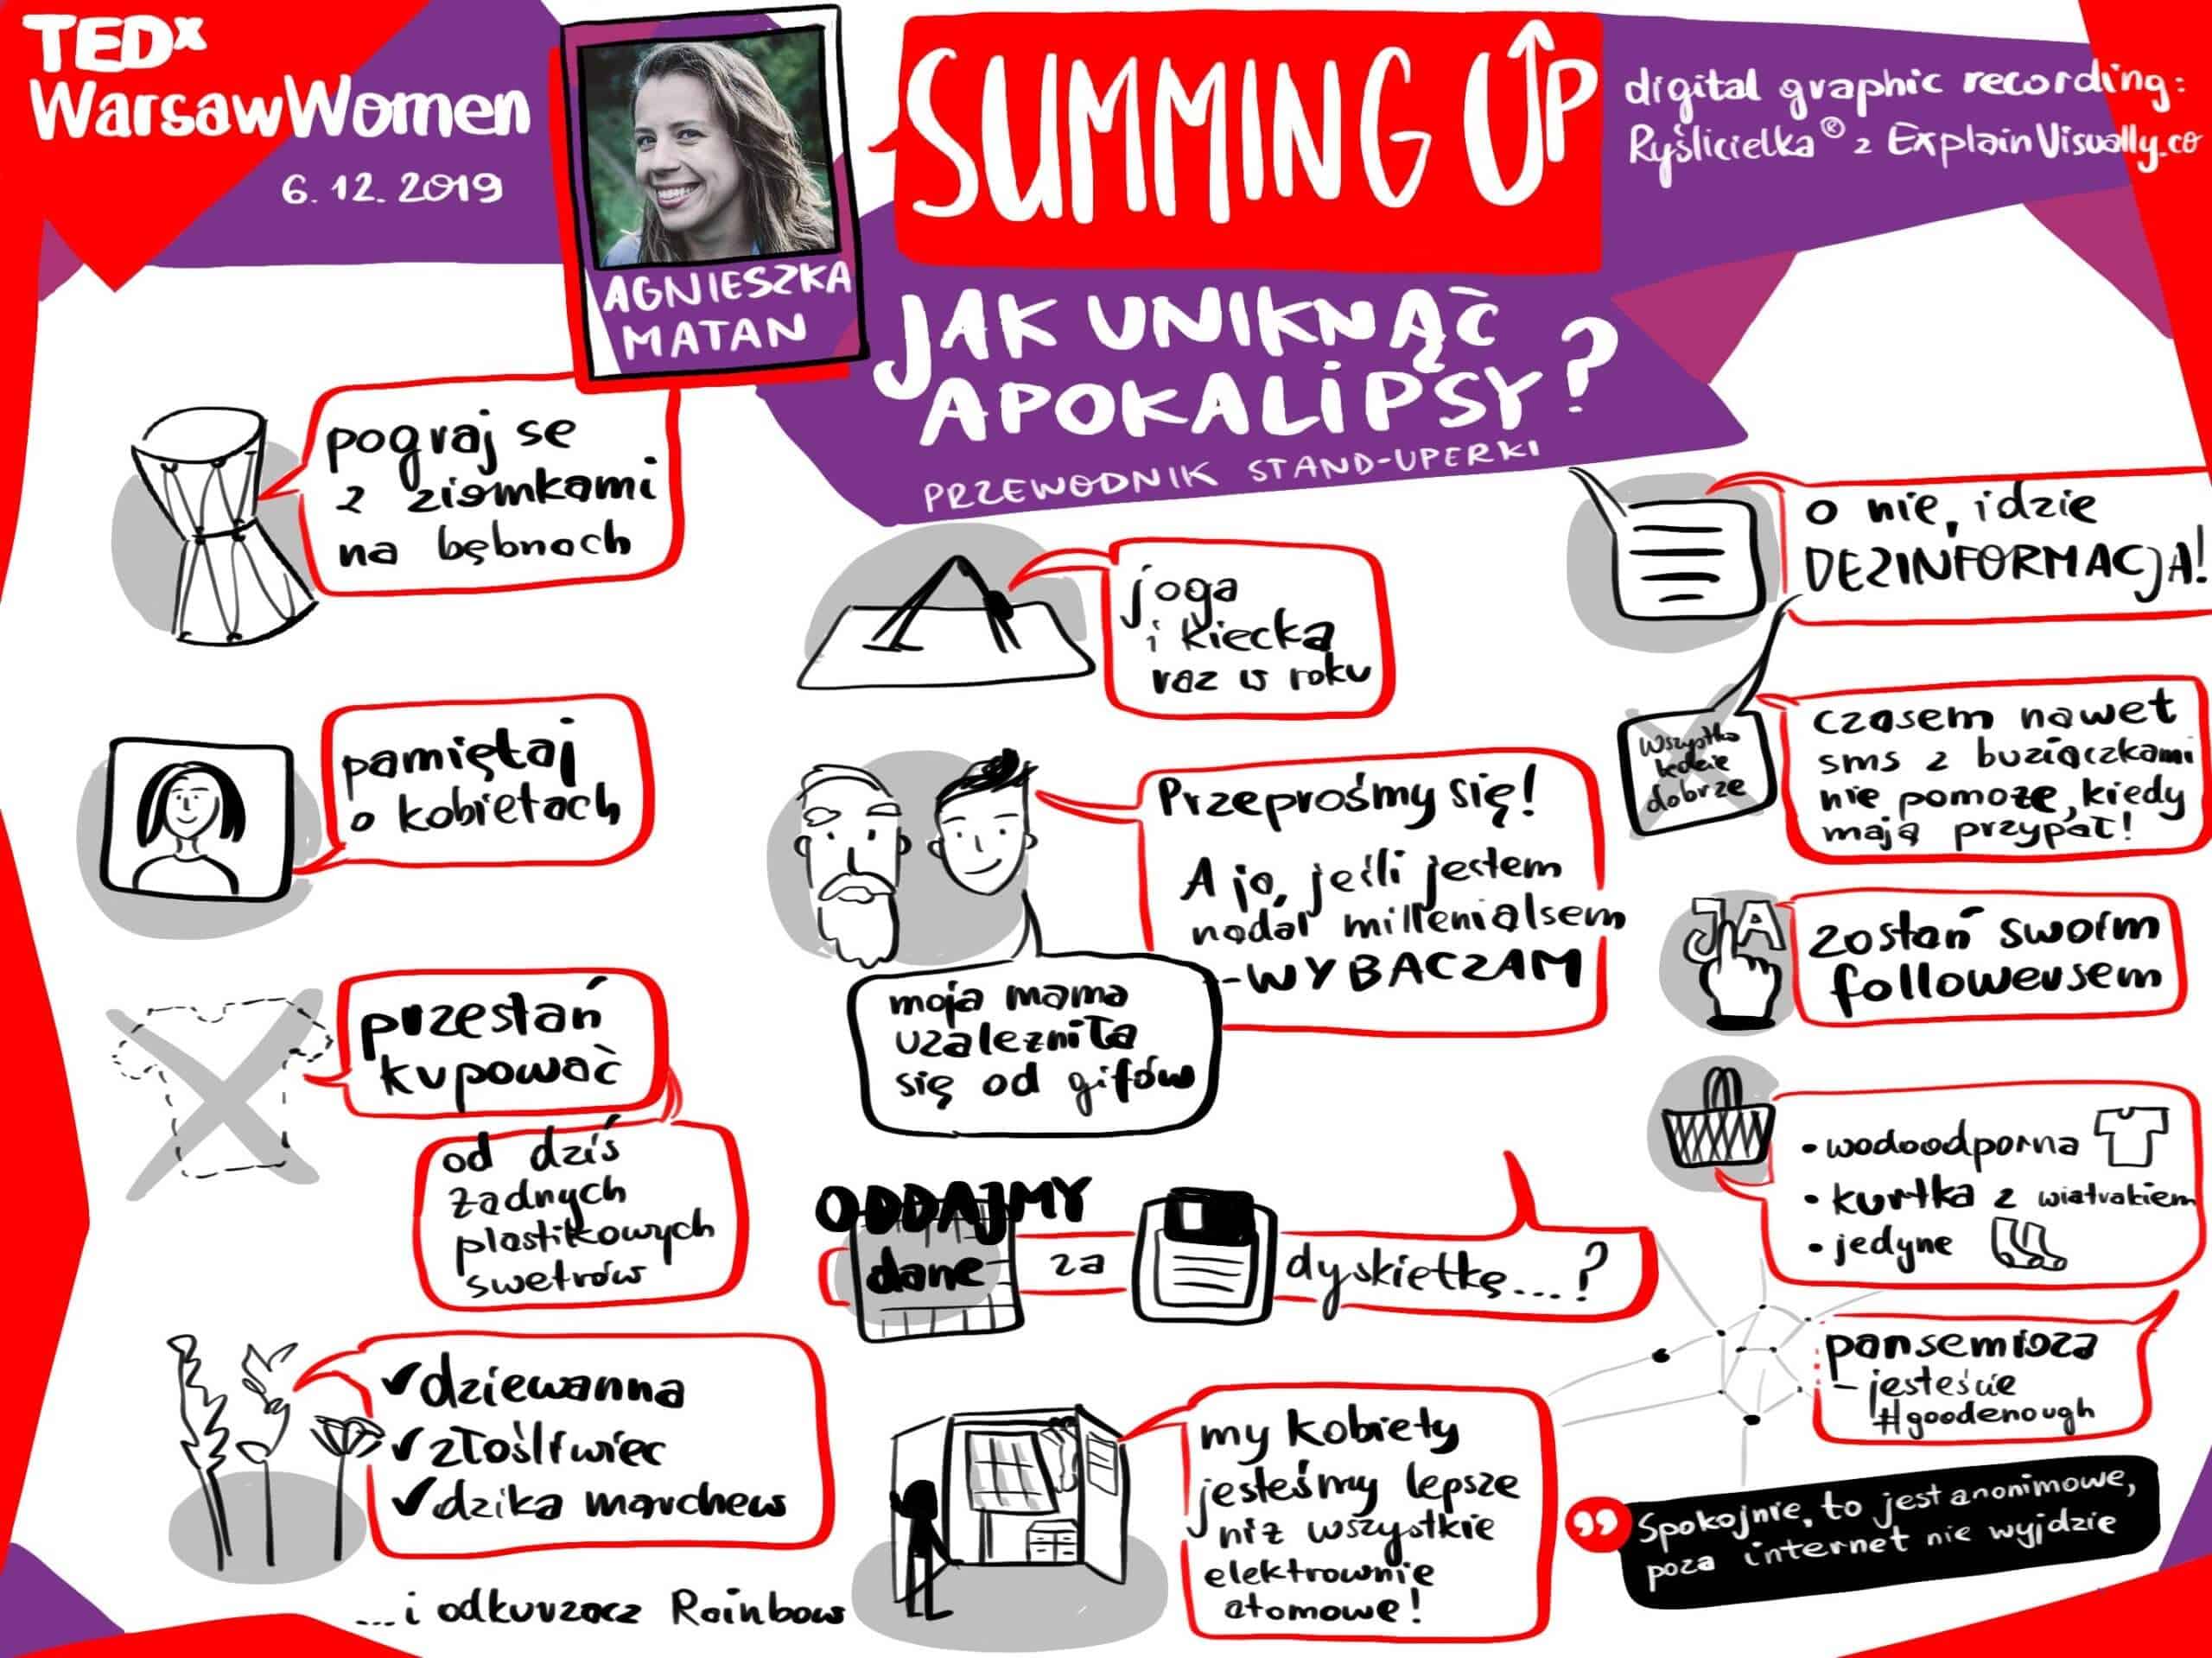 TEDx
WarsawWomen
6. 12. 2019
AGNIESZKA
MATAN
SUMMING UP
digital graphic recording:
Ryślicielka® z ExplainVisually.co
JAK UNIKNĄĆ
APOKALIPSY?
PRZEWODNIK STAND-UPERKI
pograj se
z ziomkami
na bębnach
pamiętaj
o kobietach
przestań
kupować
od dziś
żadnych
plastikowych
swetrów
✓dziewanna
✓złośliwiec
✓dzika marchew
...i odkurzacz Rainbow
joga
i kiecka
raz w roku
Przeprośmy się!
A ja, jeśli jestem
nadal millenialsem
-WYBACZAM
moja mama
uzależniła
się od gifów
ODDAJMY
dane za dyskietkę...?
my kobiety
jesteśmy lepsze
niż wszystkie
elektrownie
atomowe!
o nie, idzie
DEZINFORMACJA!
Wszystko
będzie
dobrze
czasem nawet
sms z buziaczkami
nie pomoże, kiedy
mają przypał!
JA
zostań swoim
followersem
• wodoodporna
• kurtka z wiatrakiem
• jedyne
pansemioza
- jesteście
#goodenough
Spokojnie, to jest anonimowe,
poza internet nie wyjdzie